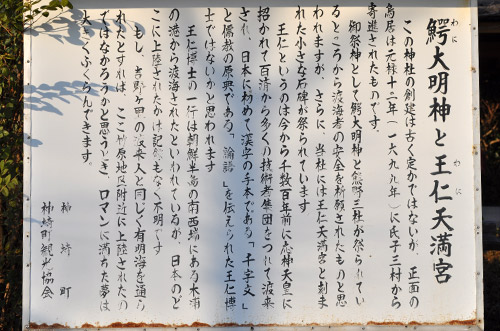 鰐大明神と王仁天満宮
わに
わに
この神社の創建は古く定かではないが、正面の
鳥居は元禄十二年(一六九九年)に氏子三村から
寄進されたものです。
御祭神として鰐大明神と熊野三社が祭られてい
るところから渡海者の安全を祈願されたものと思
われますが、さらに、当社には王仁天満宮と刻ま
れた小さな石碑が祭られています
王仁というのは今から千数百年前に応神天皇に
招かれて百済から多くの技術者集団をつれて渡来
され、日本に初めて漢字の手本である「千字文」
と儒教の原典である「論語」を伝えられた王仁博
士ではないかと思われます
王仁博士の一行は朝鮮半島の南西端にある木浦
の港から渡海されたといわれているが、日本のど
こに上陸されたかは記録もなく不明です
もし、吉野ヶ里の渡来人と同じく有明海を通ら
れたとすれば、ここ竹原地区附近に上陸されたの
ではなかろうかと思うとき、ロマンに満ちた夢は
大きくふくらんできます。
神埼町
神埼町観光協会